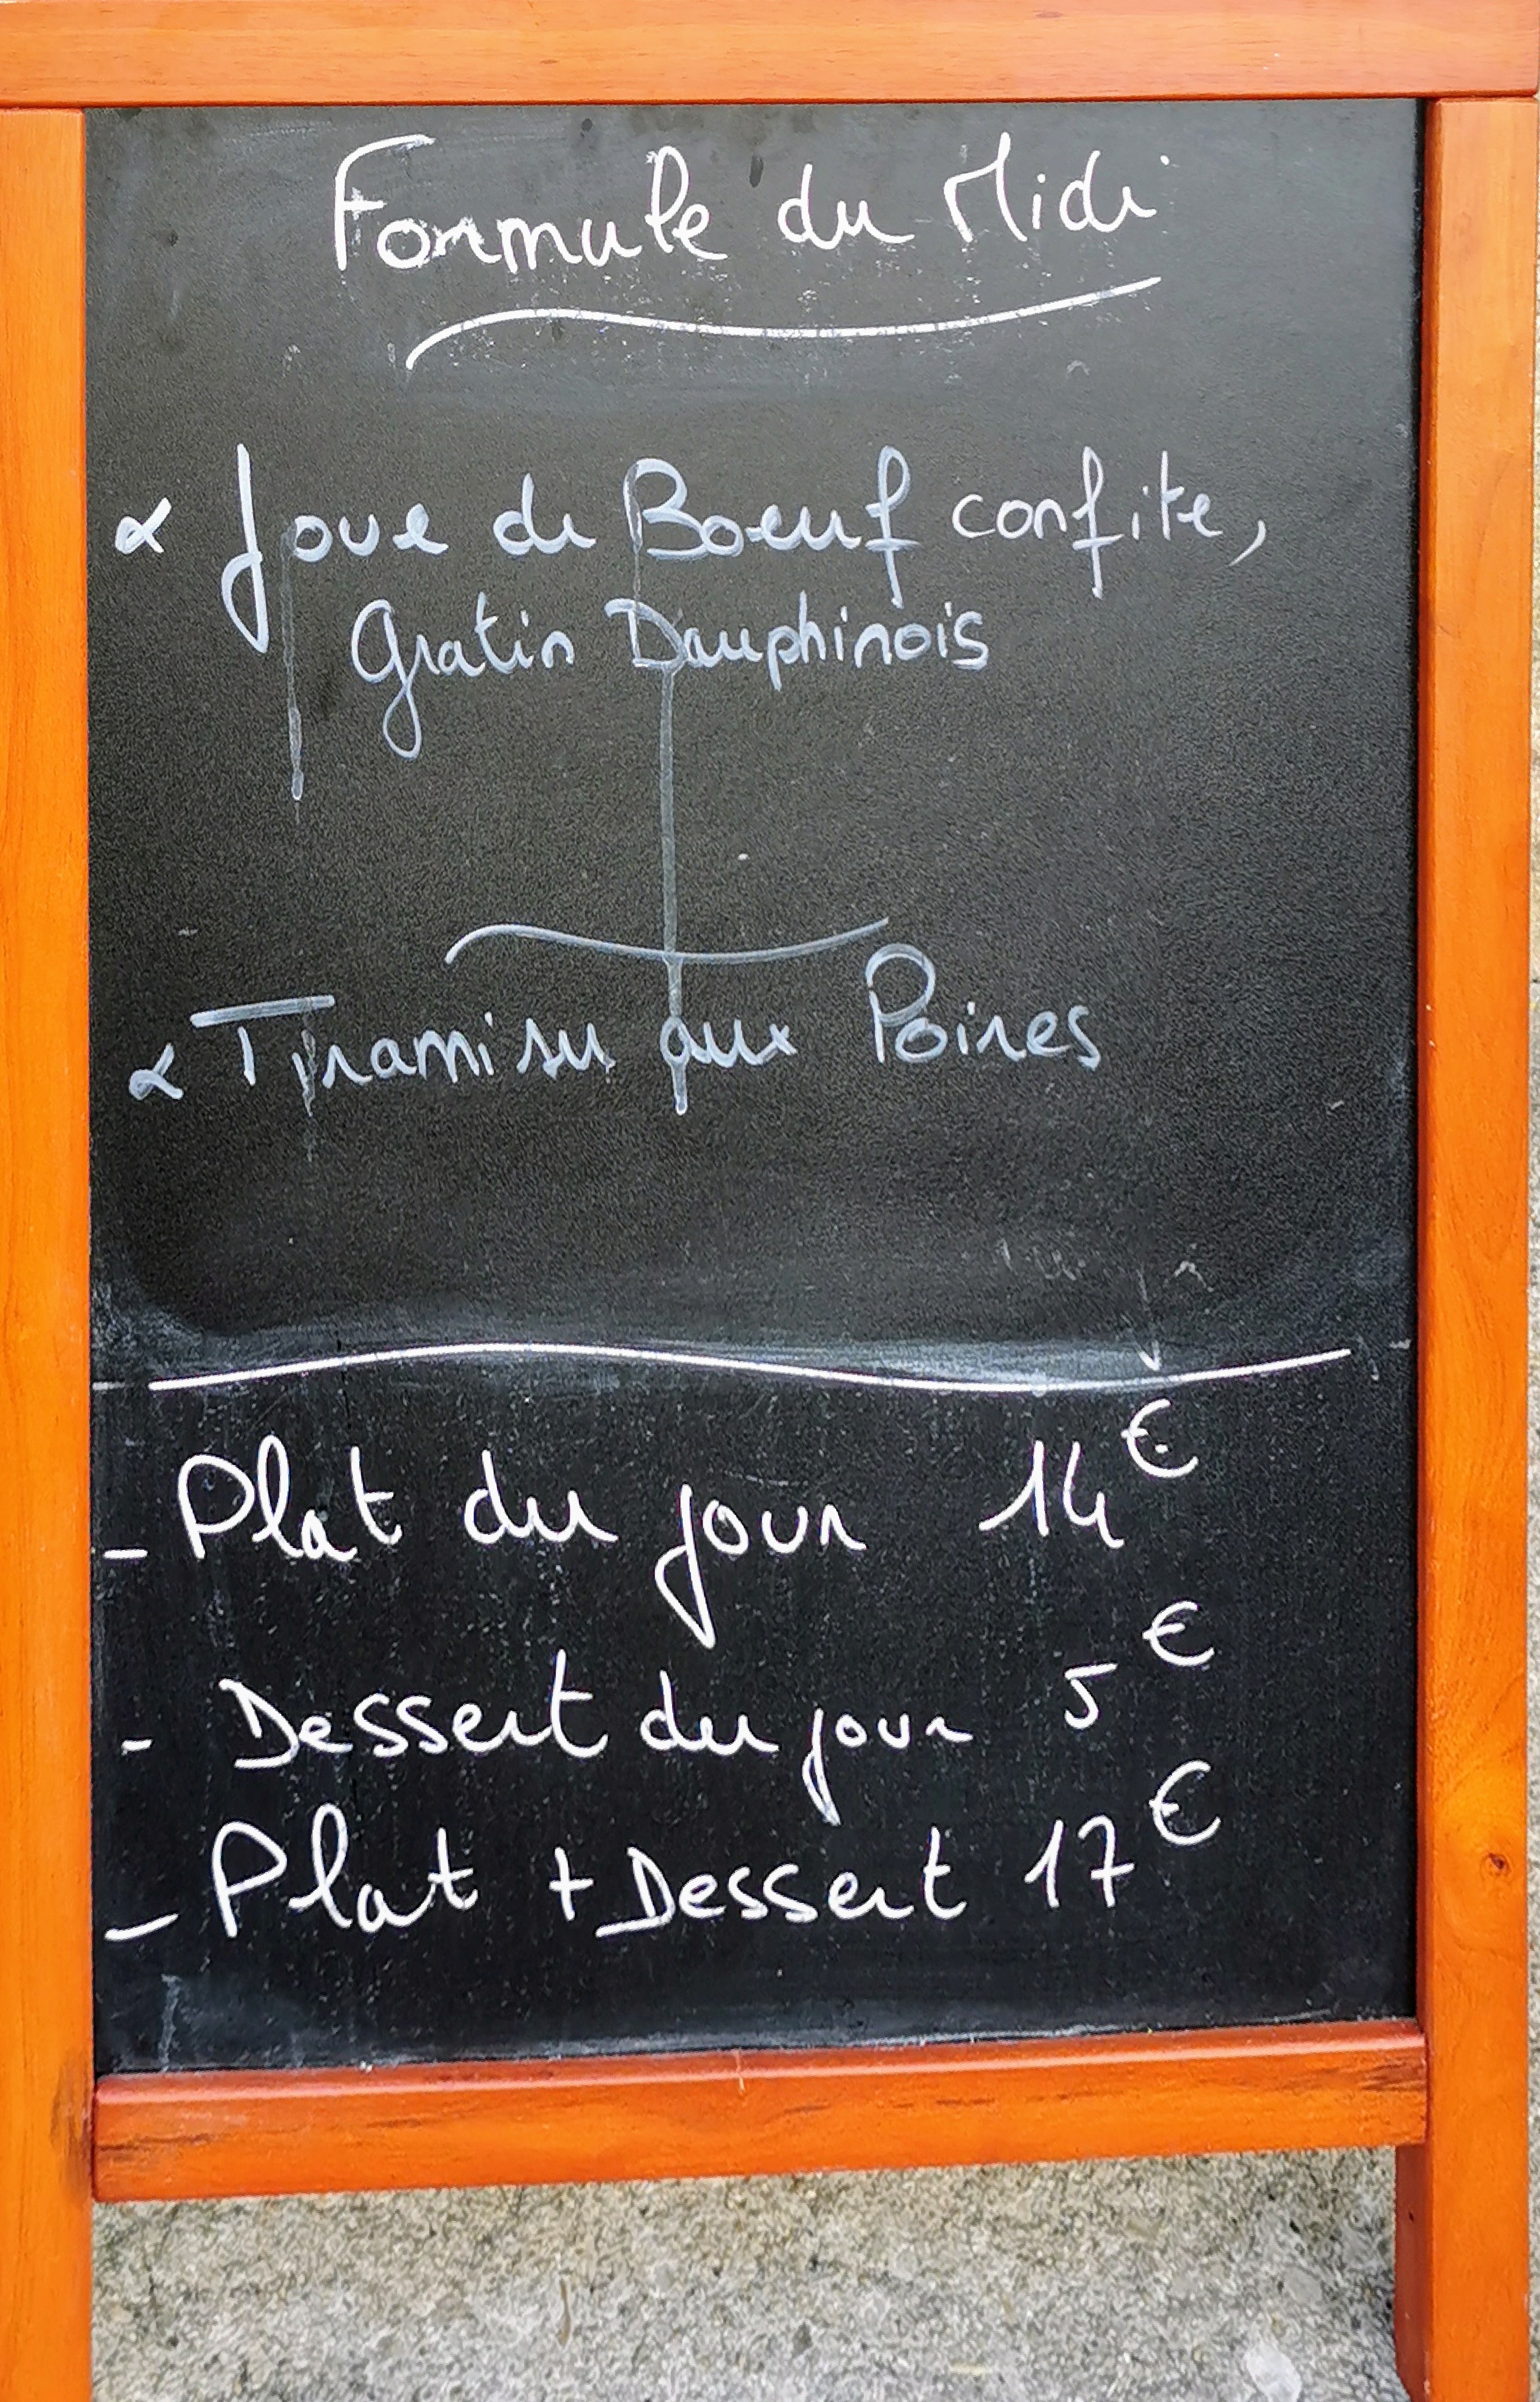 Formule du Midi
∝ Joue de Boeuf confite,
Gratin Dauphinois
∝ Tiramisu aux Poires
- Plat du jour 14€
- Dessert du jour 5€
- Plat + Dessert 17€